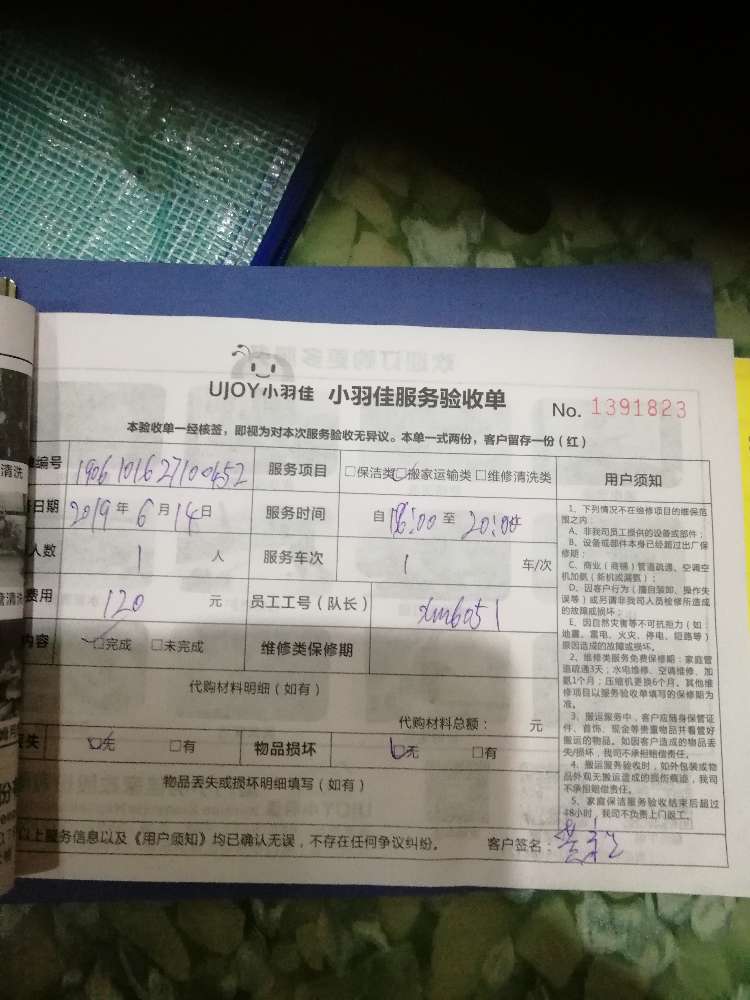 UJOY小羽佳 小羽佳服务验收单 No. 1391823
本验收单一经核签，即视为对本次服务验收无异议。本单一式两份，客户留存一份（红）
编号 服务项目 □保洁类 □搬家运输类 □维修清洗类 用户须知
日期 2019年6月14日 服务时间 自 16:00 至 20:00
人数 1 人 服务车次 1 车/次
费用 120 元 员工工号（队长） xm6051
内容 □完成 □未完成 维修类保修期
代购材料明细（如有）
代购材料总额： 元
丢失 □无 □有 物品损坏 □无 □有
物品丢失或损坏明细填写（如有）
以上服务信息以及《用户须知》均已确认无误，不存在任何争议纠纷。 客户签名：
1、下列情况不在维修项目的维保范
围之内：
A、非我司员工提供的设备或部件；
B、设备或部件本身已经超过出厂保
修期；
C、商业（商铺）管道疏通、空调空
机加氟（新机或漏氟）；
D、因客户行为（擅自装卸、操作失
误等）或另请非我司人员检修所造成
的故障或损坏；
E、因自然灾害等不可抗拒力（如：
地震、雷电、火灾、停电、短路等）
原因造成的故障或损坏。
2、维修类服务免费保修期：家庭管
道疏通3天；水电维修、空调维修、加
氨1个月；压缩机更换6个月。其他维
修项目以服务验收单填写的保修期为
准。
3、搬运服务中，客户应随身保管证
件、首饰、现金等贵重物品并看管好
搬运的物品。如因客户造成的物品丢
失/损坏，我司不承担赔偿责任。
4、搬运服务验收时，如外包装或物
品外观无搬运造成的损伤痕迹，我司
不承担赔偿责任。
5、家庭保洁服务验收结束后超过
48小时，我司不负责上门返工。
清洗